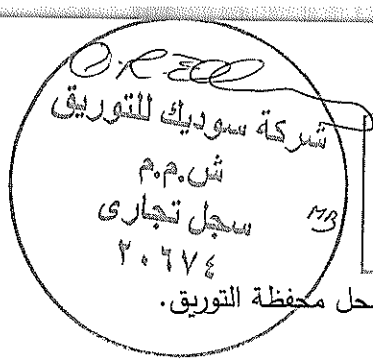 شركة سوديك للتوريق
ش.م.م
سجل تجارى
٢٠٦٧٤
MB
حل محفظة التوريق.